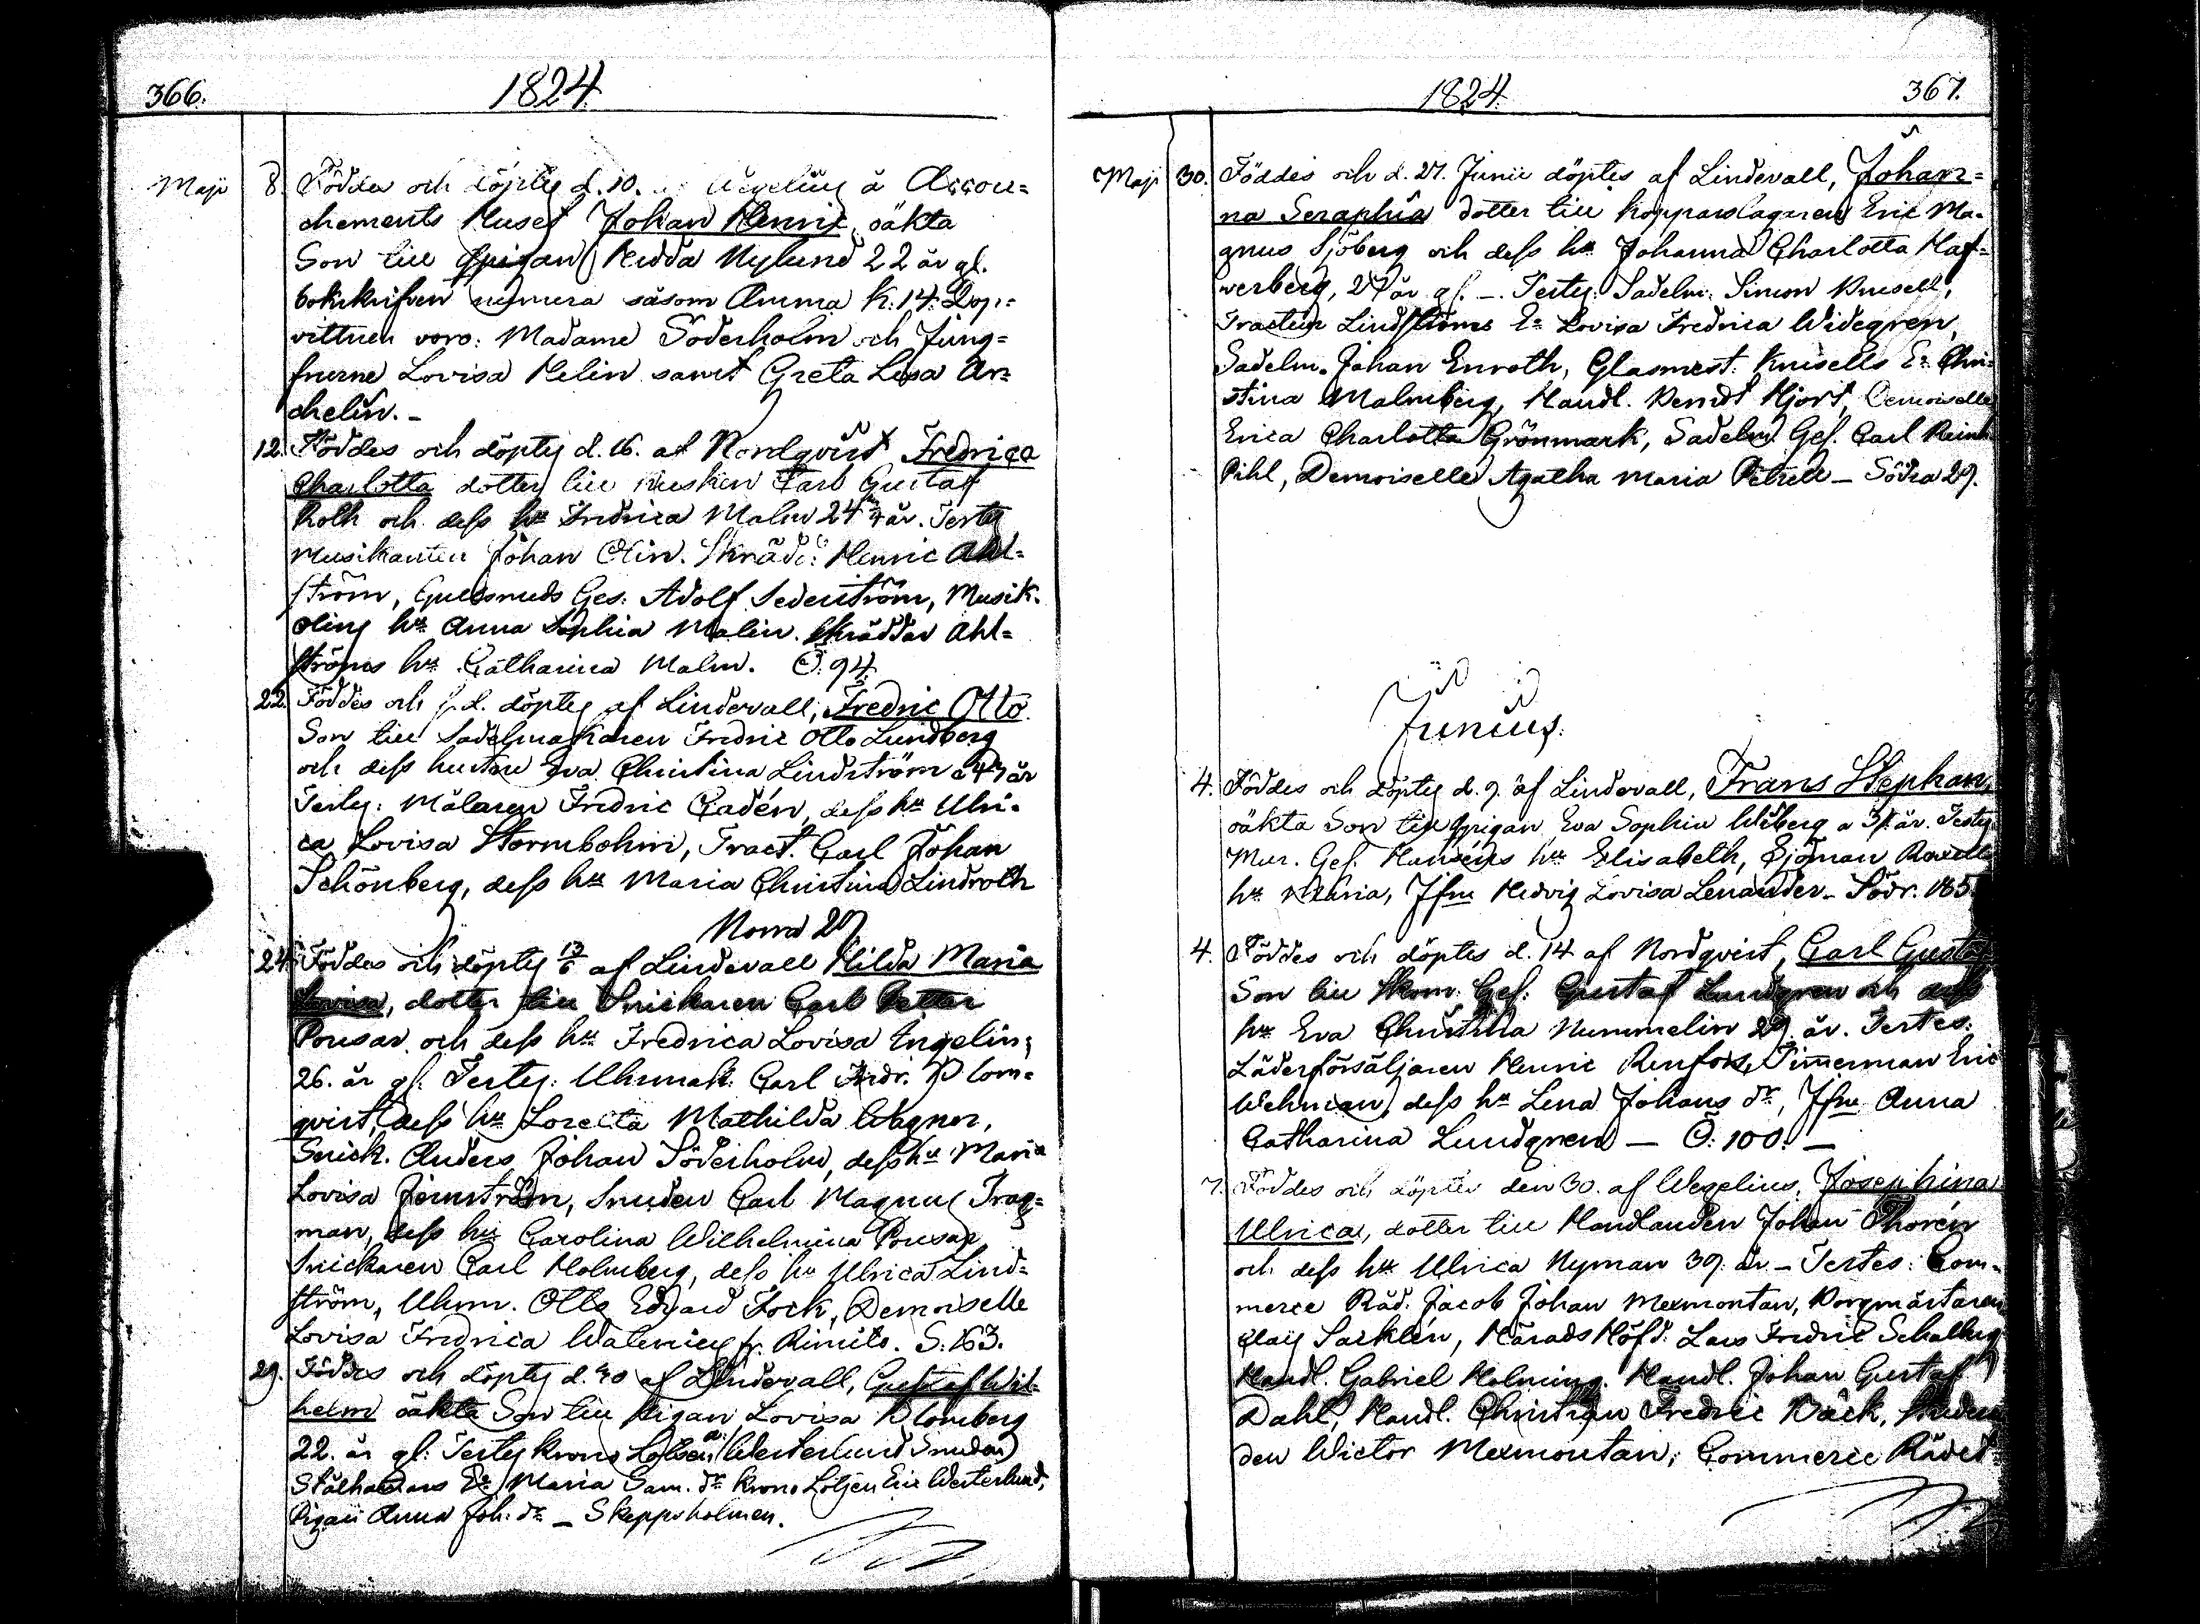 366.
1824.
Maji 8. Föddes och döptes d. 10. af Wegelius å Accou=
chements Huset Johan Henric, oäkta
Son till Pigan Hedda Nylund 22 år gl.
bokskrifven numera såsom Amma k: 14. Dop=
vittnen voro: Madame Söderholm och Jung=
frurne Lovisa Helin samt Greta Lisa Ar=
chelin. -
12. Föddes och döptes d. 16. af Nordqvist Fredrica
Charlotta dotter till Carl Gustaf
Roth och dess hu Fredrica Malm 24 år. Testes
Musikanten Johan Olin. Skräd: Henric Ahl=
ström, Guldsmeds Ges: Adolf Sederström, Musik.
Olins hu Anna Sophia Malin. Skräddar Ahl=
ströms hu Catharina Malm. Ö. 94.
22. Föddes och s. d. döptes af Lindevall, Fredric Otto
Son till Sadelmakaren Fredric Otto Lundberg
och dess hustru Eva Christina Lindström år
Testes: Målaren Fredric Cadén, dess hu Ulri=
ca Lovisa Stormbohm, Tract. Carl Johan
Schönberg, dess hu Maria Christina Lindroth
Norra 27
24. Föddes och döptes 13/6 af Lindevall Hilda Maria
Lovisa, dotter till Snickaren Carl Petter
Pousar och dess hu Fredrica Lovisa Engelin,
26. år gl. Testes: Uhrmak: Carl Fredr. Blom=
qvist, dess hu Loretta Mathilda Wagner,
Snick. Anders Johan Söderholm, dess hu Maria
Lovisa Jernström, Smeden Carl Magnus Trag=
man, dess hu Carolina Wilhelmina Pousar
Snickaren Carl Holmberg, dess hu Ulrica Lind=
ström, Uhrm. Otto Edvard Fock, Demoiselle
Lovisa Fredrica Walenius fr. Rimito. S. 163.
29. Föddes och döptes d. 30 af Lindevall, Gustaf Wil=
helm oäkta Son till Pigan Lovisa Blomberg
22. år gl: Testes Krono Lotsen Westerlund Smeden
Stålhandlars Ea Maria Sam. dr Krono Lotsen Eric Westerlund,
Pigan Anna Joh. dr - Skeppsholmen.
1824.
367.
Maji 30. Föddes och d. 27. Junii döptes af Lindevall, Johan=
na Seraphia dotter till Kopparslagaren Eric Ma=
gnus Sjöberg och dess hu Johanna Charlotta Haf=
verberg, 27 år gl. - Testes: Sadelm: Simon Knisell,
Tracteur Lindströms Ea Lovisa Fredrica Widegren,
Sadelm. Johan Enroth, Glasmest: Knisells Ea Chri=
stina Malmberg, Handl. Berndt Hjort, Demoiselle
Erica Charlotta Grönmark, Sadelm. Ges. Carl Reinh
Pihl, Demoiselle Agatha Maria Petrell - Södra 29.
Junius.
4. Föddes och döptes d. 9. af Lindevall, Frans Stephan,
oäkta Son till Pigan Eva Sophia Wiberg a 31 år. Testes
Mur. Ges. Hanséns hu Elisabeth, Sjöman Roxells
hu Maria, Jfru Hedvig Lovisa Lenander - Södr. 185.
4. Föddes och döptes d. 14 af Nordqvist, Carl Gustaf
Son till Skom. Ges: Gustaf Lundgren och dess
hu Eva Christina Nummelin 29. år. Testes:
Läderförsäljaren Henric Renfors, Timmerman Eric
Wehman, dess hu Lena Johans dr, Jfru Anna
Catharina Lundgren - Ö: 100. -
7. Föddes och döptes den 30. af Wegelius, Josephina
Ulrica, dotter till Handlanden Johan Thorén
och dess hu Ulrica Nyman 39. år - Testes: Com=
merce Råd. Jacob Johan Mexmontan, Borgmästaren
Claes Sacklén, Härads Höfd. Lars Fredric Schalberg
Handl. Gabriel Holming. Handl. Johan Gustaf
Dahl, Handl. Christian Fredric Bäck, Studen
den Wictor Mexmontan, Commerce Rådet=